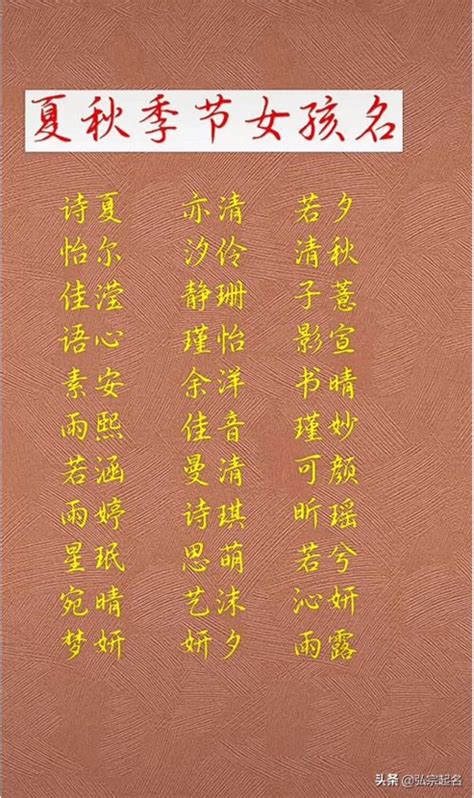 夏秋季节女孩名
诗夏 亦清 若夕
怡尔 汐伶 清秋
佳滢 静珊 子薏
语心 瑾怡 影宣
素安 余洋 书晴
雨熙 佳音 瑾妙
若涵 曼清 可颜
雨婷 诗琪 昕瑶
星珉 思萌 若兮
宛晴 艺沫 沁妍
梦妍 妍夕 雨露
头条 @弘宗起名